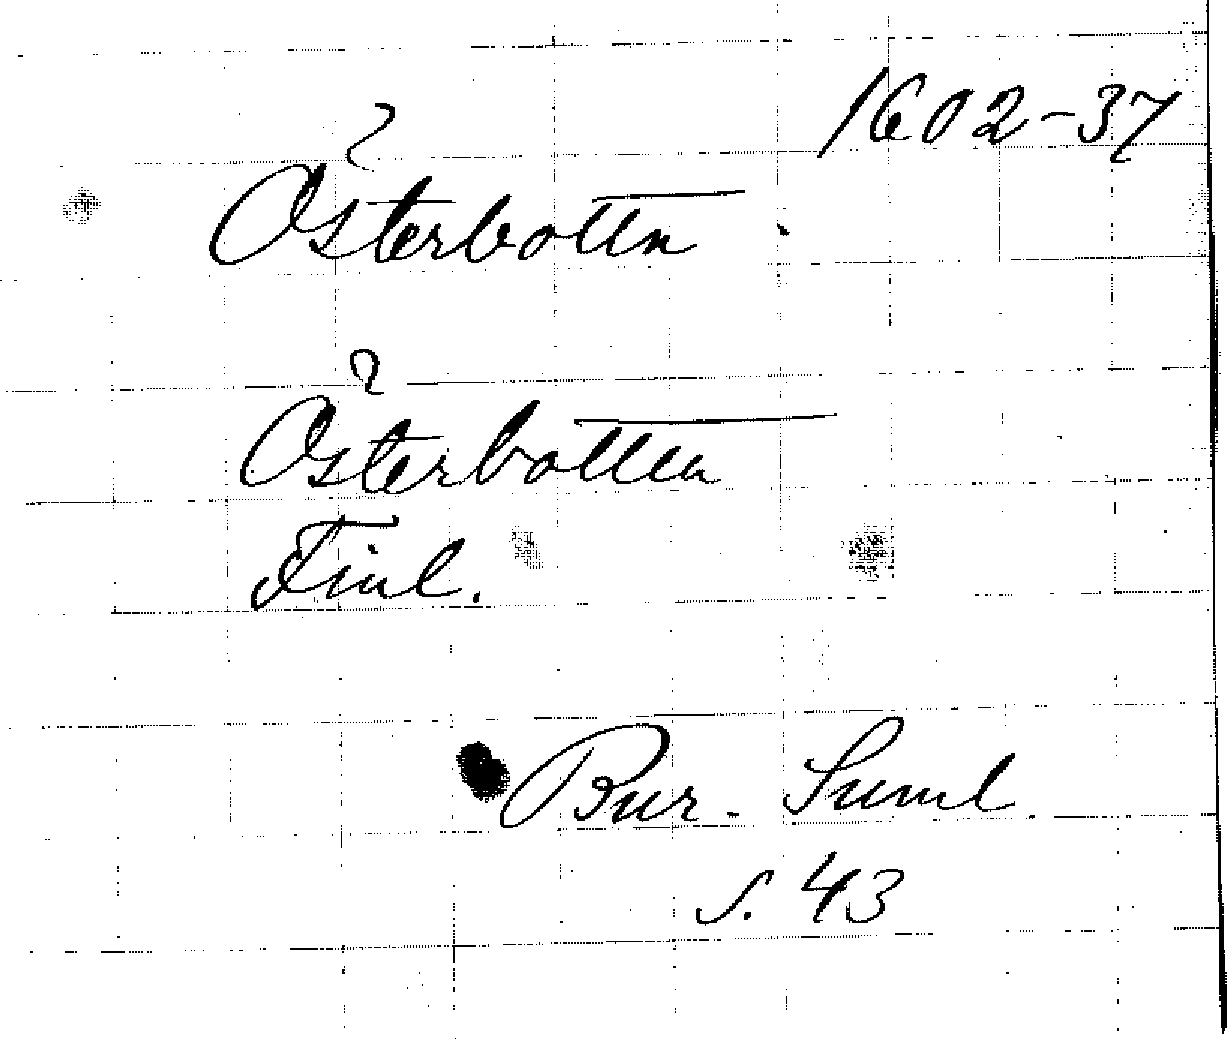 1602-37
Österbottn.
Österbotten
Finl.
Bur. Suml
s. 43